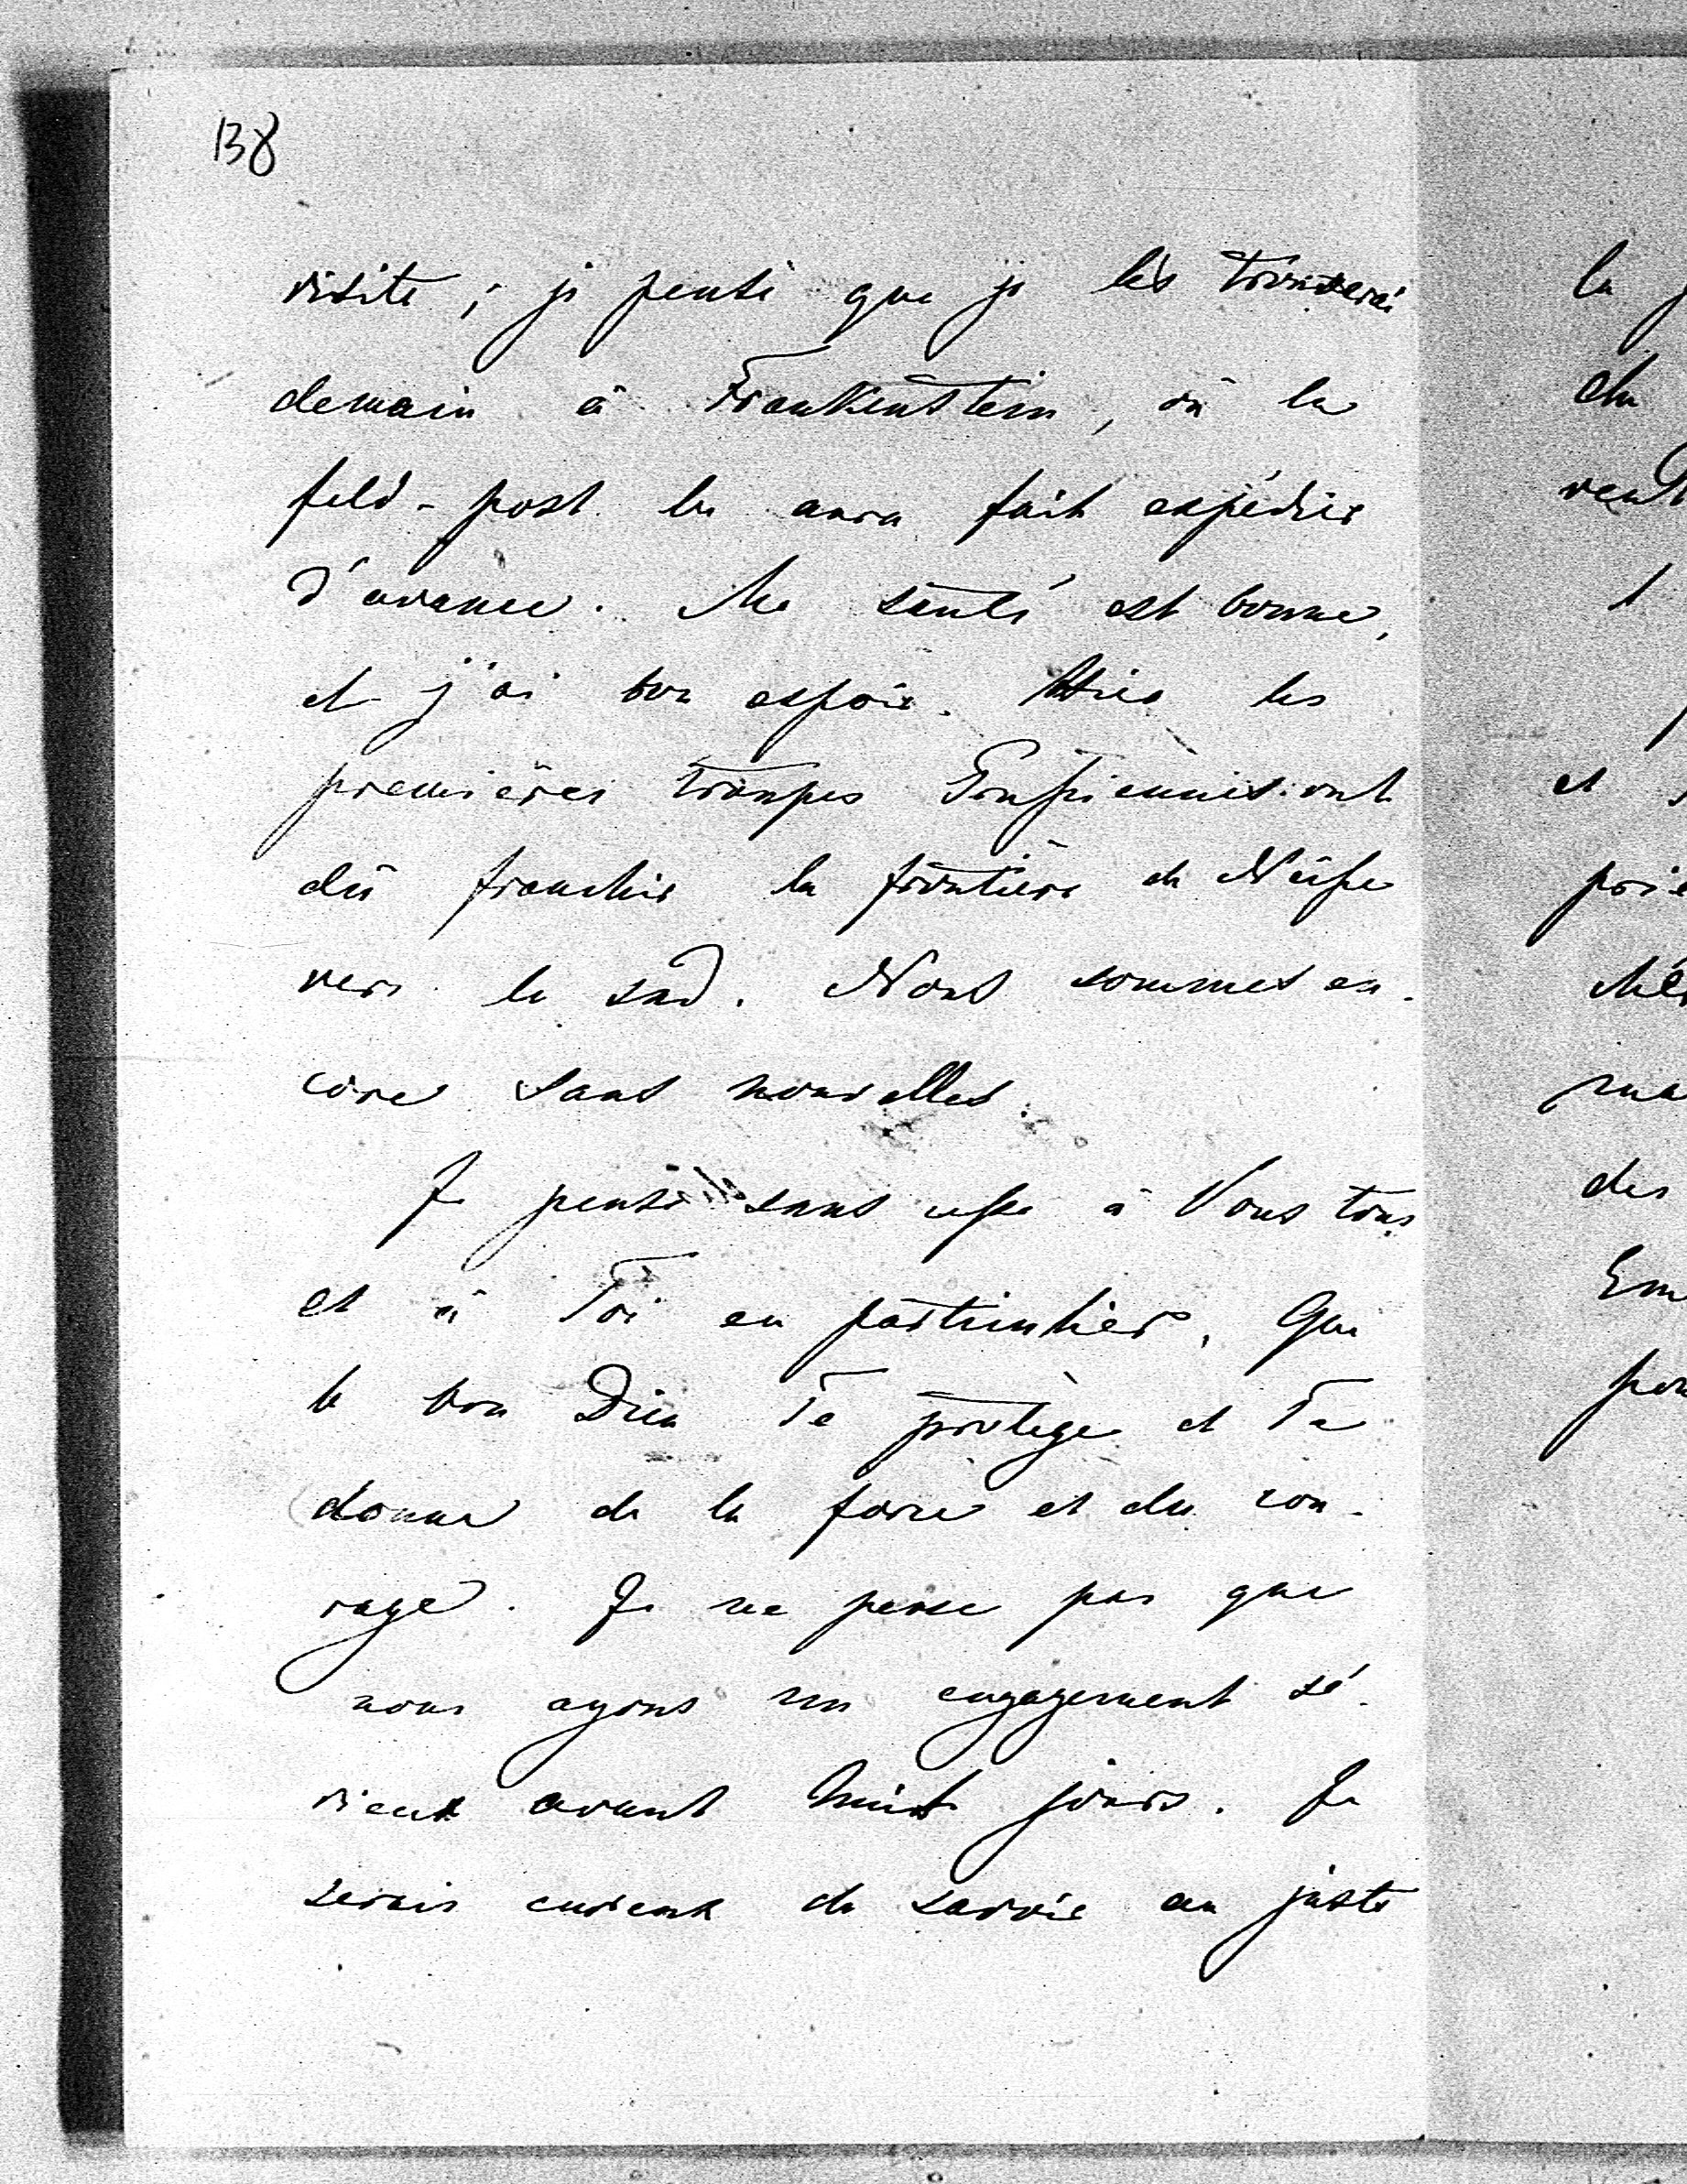 138
visite; je pense que je les trouverai
demain à Frankenstein, où la
feld-post les aura fait expédier
d'avance. Ma santé est bonne,
et j'ai bon espoir. Hier les
premières troupes Prussiennes ont
dû franchir la frontière de Neisse
vers le sud. Nous sommes en-
core sans nouvelles.
Je pense sans cesse à Vous tous
et à Toi en particulier. Que
le bon Dieu Te protège et Te
donne de la force et du cou-
rage. Je ne pense pas que
nous ayons un engagement sé-
rieux avant huit jours. Je
serais curieux de savoir au juste